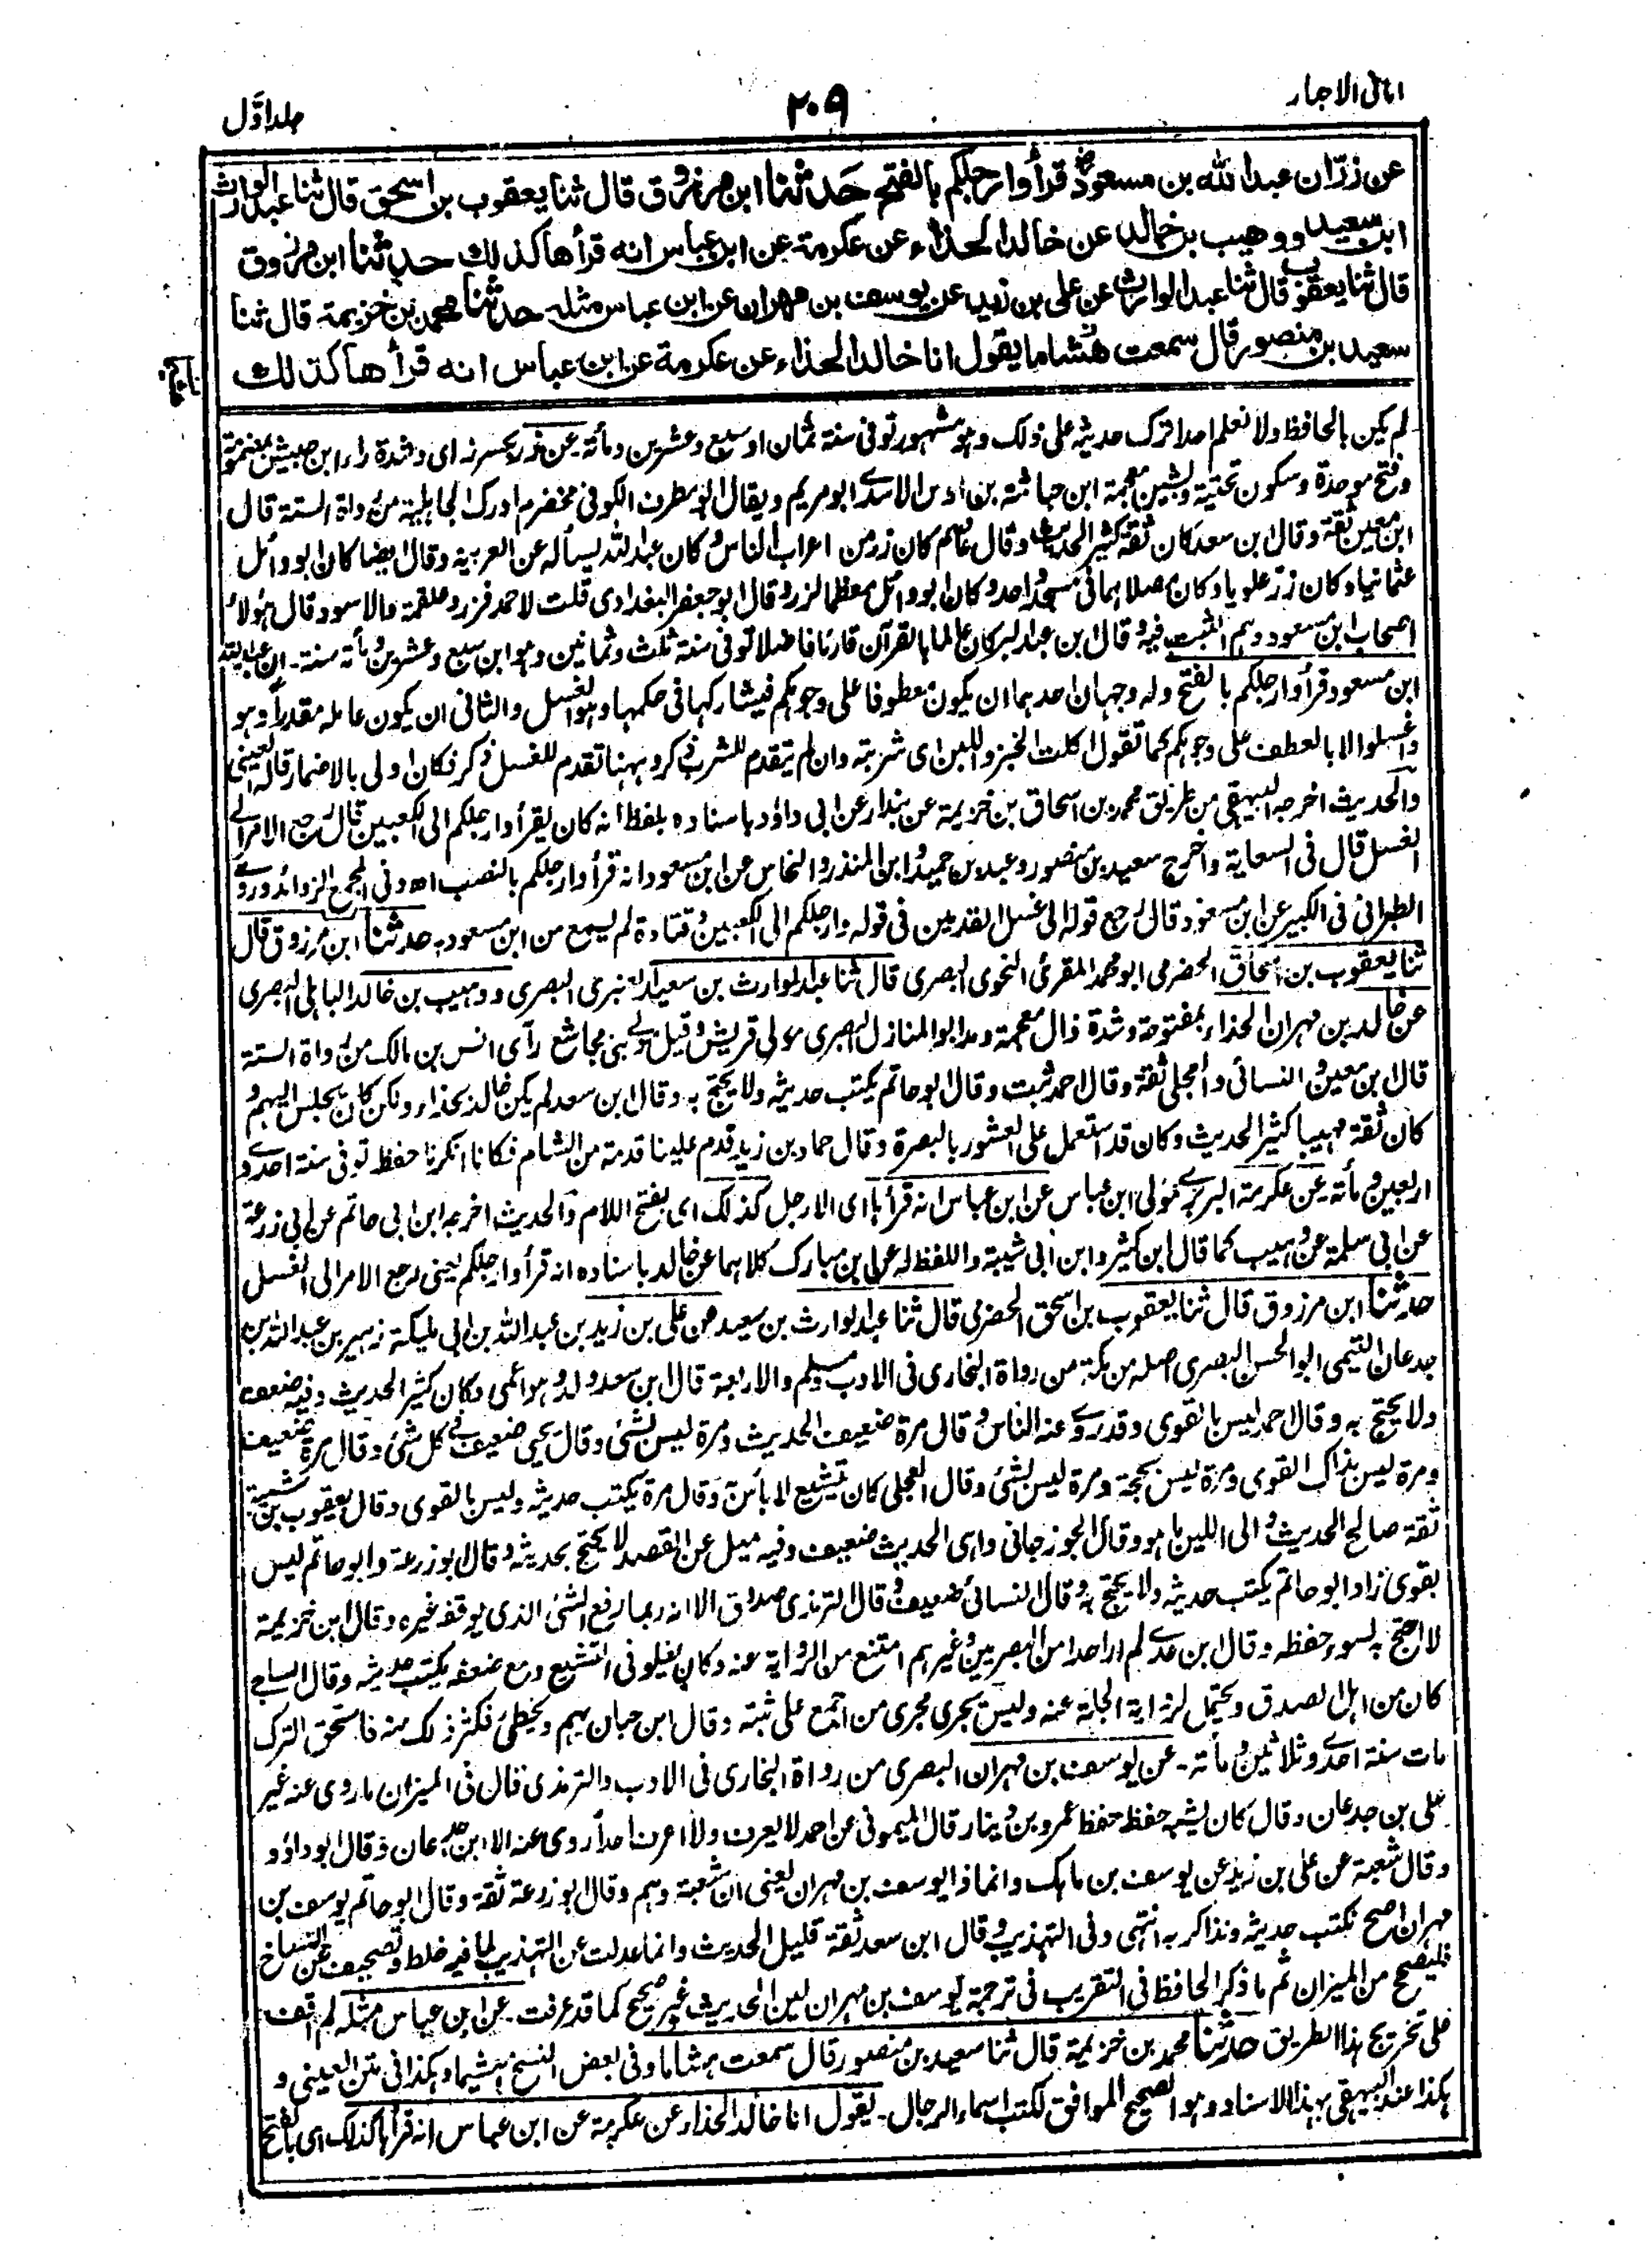 امانی الاحبار
٢٠٩
جلد اوّل
عن زرّ ان عبد الله بن مسعودؓ قرأ وارجلكم بالفتح حَدثنا ابن مرزوق قال ثنا يعقوب بن اسحق قال ثنا عبد الوارث
ابن سعيد ووهيب بن خالد عن خالد الحذاء عن عكرمة عن ابن عباس انه قرأها كذلك حدثنا ابن مرزوق
قال ثنا يعقوب قال ثنا عبد الوارث عن على بن زيد عن يوسف بن مهران عن ابن عباس مثله حدثنا محمد بن خزيمة قال ثنا
سعيد بن منصور قال سمعت هشاما يقول انا خالد الحذاء عن عكرمة عن ابن عباس انه قرأها كذلك
لم يكن بالحافظ ولا نعلم احدا ترك حديثه على ذلك وهو مشهور توفى سنة ثمان او سبع وعشرين ومأة عن زر بكسر زاى وشدة راء ابن حبيش بمضمومة
وفتح موحدة وسكون تحتية وبشين معجمة ابن حباشة بن اوس الاسدى ابو مريم ويقال ابو مطرف الكوفى مخضرم ادرك الجاهلية من رواة الستة قال
ابن معين ثقة وقال ابن سعد كان ثقة كثير الحديث وقال عاصم كان زر من اعراب الناس وكان عبد الله يسأله عن العربية وقال ايضا كان ابو وائل
عثمانيا وكان زر علويا وكان مصلاهما فى مسجد واحد وكان ابو وائل معظما لزر وقال ابو جعفر البغدادى قلت لاحمد فزر وعلقمة والاسود قال هؤلاء
اصحاب ابن مسعود وهم الثبت فيه وقال ابن عبد البر كان عالما بالقرآن قارئا فاضلا توفى سنة ثلث وثمانين وهو ابن سبع وعشرين ومأة سنة۔ ان عبد الله
ابن مسعود قرأ وارجلكم بالفتح وله وجهان احدهما ان يكون معطوفا على وجوهكم فيشاركها فى حكمها وهو الغسل والثانى ان يكون عامله مقدرا وهو
واغسلوا لا بالعطف على وجوهكم كما تقول اكلت الخبز واللبن اى شربته وان لم يتقدم للشرب ذكر وههنا تقدم للغسل ذكر فكان اولى بالاضمار قاله العينى
والحديث اخرجه البيهقى من طريق محمد بن اسحاق بن خزيمة عن بندار عن ابى داؤد باسناده بلفظ انه كان يقرأ وارجلكم الى الكعبين قال رجع الامر الى
الغسل قال فى السعاية واخرج سعيد بن منصور وعبد بن حميد وابن المنذر والنحاس عن ابن مسعود انه قرأ وارجلكم بالنصب اھ وفى المجمع الزوائد وروى
الطبرانى فى الكبير عن ابن مسعود قال رجع قوله الى غسل القدمين فى قوله وارجلكم الى الكعبين وقتادة لم يسمع من ابن مسعود۔ حدثنا ابن مرزوق قال
ثنا يعقوب بن اسحاق الحضرمى ابو محمد المقرئ النحوى البصرى قال ثنا عبد الوارث بن سعيد العنبرى البصرى ووهيب بن خالد الباهلى البصرى
عن خالد بن مهران الحذاء بمفتوحة وشدة ذال معجمة ومد ابو المنازل البصرى مولى قريش وقيل مولى بنى مجاشع رآى انس بن مالك من رواة الستة
قال ابن معين والنسائى والعجلى ثقة وقال احمد ثبت وقال ابو حاتم يكتب حديثه ولا يحتج به وقال ابن سعد لم يكن خالد بحذاء ولكن كان يجلس اليهم و
كان ثقة مهيبا كثير الحديث وكان قد استعمل على العشور بالبصرة وقال حماد بن زيد قدم علينا قدمة من الشام فكانا انكرنا حفظه توفى سنة احدى و
اربعين ومأة۔ عن عكرمة البربرى مولى ابن عباس عن ابن عباس انه قرأها اى الارجل كذلك اى بفتح اللام والحديث اخرجه ابن ابى حاتم عن ابى زرعة
عن ابى سلمة عن وهيب كما قال ابن كثير وابن ابى شيبة واللفظ له عن ابن مبارك كلاهما عن خالد باسناده انه قرأ وارجلكم يعنى رجع الامر الى الغسل
حدثنا ابن مرزوق قال ثنا يعقوب بن اسحق الحضرمى قال ثنا عبد الوارث بن سعيد عن على بن زيد بن عبد الله بن ابى مليكة زهير بن عبد الله بن
جدعان التيمى ابو الحسن البصرى اصله من مكة من رواة البخارى فى الادب ومسلم والاربعة قال ابن سعد ولد وهو اعمى وكان كثير الحديث وفيه ضعف
ولا يحتج به وقال احمد ليس بالقوى وقد روى عنه الناس وقال مرة ضعيف الحديث ومرة ليس بشئ وقال يحيى ضعيف فى كل شئ وقال مرة ضعيف
ومرة ليس بذاك القوى ومرة ليس بحجة ومرة ليس بشئ وقال العجلى كان يتشيع لا بأس به وقال مرة يكتب حديثه وليس بالقوى وقال يعقوب بن شيبة
ثقة صالح الحديث والى اللين ما هو وقال الجوزجانى واهى الحديث ضعيف وفيه ميل عن القصد لا يحتج بحديثه وقال ابو زرعة وابو حاتم ليس
بقوى زاد ابو حاتم يكتب حديثه ولا يحتج به وقال النسائى ضعيف وقال الترمذى صدوق الا انه ربما رفع الشئ الذى يوقفه غيره وقال ابن خزيمة
لا احتج به لسوء حفظه وقال ابن عدى لم ار احدا من البصريين وغيرهم امتنع من الرواية عنه وكان يغلو فى التشيع ومع ضعفه يكتب حديثه وقال الساجى
كان من اهل الصدق ويحتمل لرواية الجلة عنه وليس يجرى مجرى من اجمع على ثبته وقال ابن حبان يهم ويخطئ فكثر ذلك منه فاستحق الترك
مات سنة احدى وثلاثين ومأة۔ عن يوسف بن مهران البصرى من رواة البخارى فى الادب والترمذى قال فى الميزان ما روى عنه غير
على بن جدعان وقال كان يشبه حفظه حفظ عمرو بن دينار قال الميمونى عن احمد لا يعرف ولا اعرف احداً روى عنه الا ابن جدعان وقال ابو داؤد
وقال شعبة عن على بن زيد عن يوسف بن ماهك وانما ذا يوسف بن مهران يعنى ان شعبة وهم وقال ابو زرعة ثقة وقال ابو حاتم يوسف بن
مهران اصح نكتب حديثه ونذاكر به انتهى وفى التهذيب وقال ابن سعد ثقة قليل الحديث وانما عدلت عن التهذيب لما فيه غلط وتصحيف عن النساخ
فليصحح من الميزان ثم ما ذكر الحافظ فى التقريب فى ترجمة يوسف بن مهران لين الحديث غير صحيح كما قد عرفت۔ عن ابن عباس مثله لم اقف
على تخريج هذا الطريق حدثنا محمد بن خزيمة قال ثنا سعيد بن منصور قال سمعت هشاما وفى بعض النسخ هشيما وهكذا فى متن العينى و
هكذا عند البيهقى بهذا الاسناد وهو الصحيح الموافق لكتب اسماء الرجال۔ يقول انا خالد الحذاء عن عكرمة عن ابن عباس انه قرأها كذلك اى بالفتح